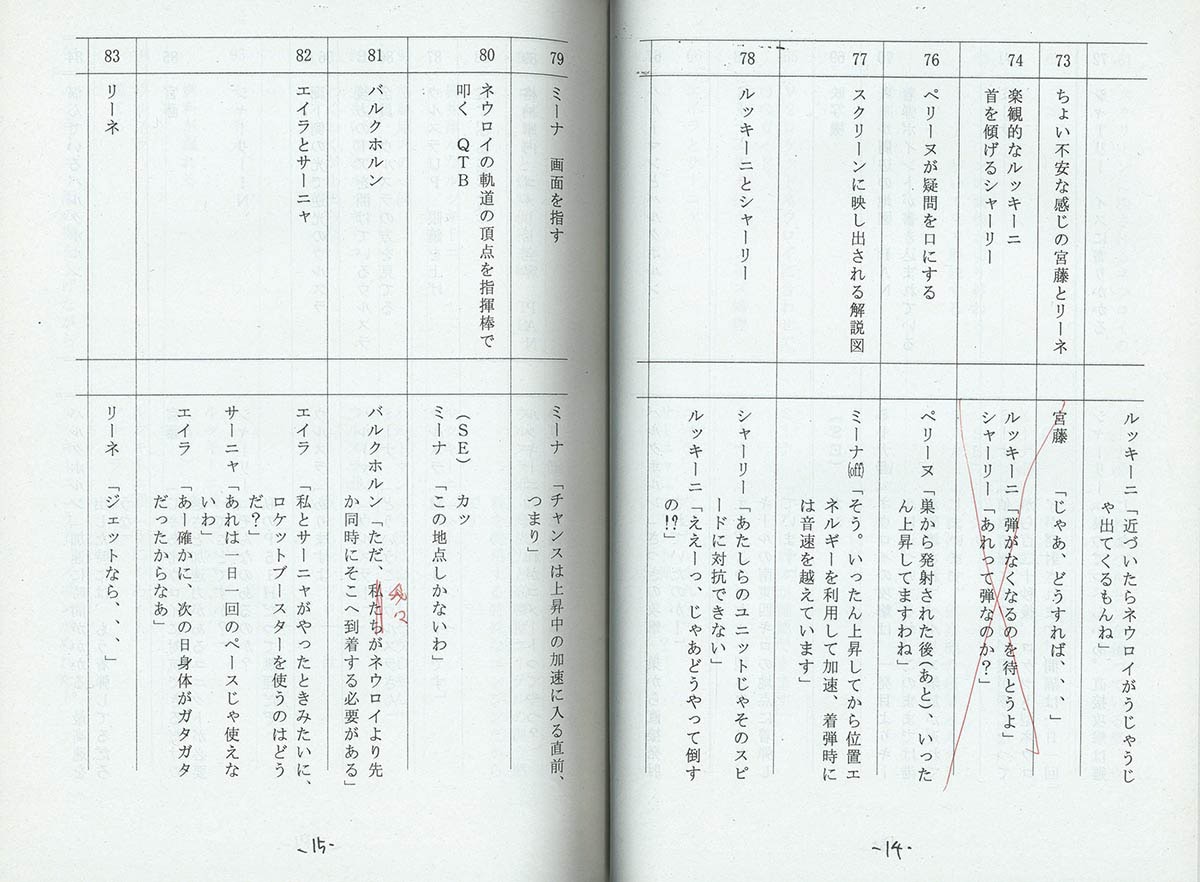 ルッキーニ「近づいたらネウロイがうじゃうじ
ゃ出てくるもんね」
73
ちょい不安な感じの宮藤とリーネ
宮藤　　　「じゃあ、どうすれば、、、」
74
楽観的なルッキーニ
首を傾げるシャーリー
ルッキーニ「弾がなくなるのを待とうよ」
シャーリー「あれって弾なのか？」
76
ペリーヌが疑問を口にする
ペリーヌ「巣から発射された後(あと)、いった
ん上昇してますわね」
77
スクリーンに映し出される解説図
ミーナ(off)「そう。いったん上昇してから位置エ
ネルギーを利用して加速、着弾時に
は音速を越えています」
78
ルッキーニとシャーリー
シャーリー「あたしらのユニットじゃそのスピ
ードに対抗できない」
ルッキーニ「ええーっ、じゃあどうやって倒す
の!?」
-14-
79
ミーナ　画面を指す
ミーナ　「チャンスは上昇中の加速に入る直前、
つまり」
80
ネウロイの軌道の頂点を指揮棒で
叩く　ＱＴＢ
（ＳＥ）　カッ
ミーナ　「この地点しかないわ」
81
バルクホルン
バルクホルン「ただ、私たちがネウロイより先
か同時にそこへ到着する必要がある」
82
エイラとサーニャ
エイラ　「私とサーニャがやったときみたいに、
ロケットブースターを使うのはどう
だ？」
サーニャ「あれは一日一回のペースじゃ使えな
いわ」
エイラ　「あー確かに、次の日身体がガタガタ
だったからなあ」
83
リーネ
リーネ　「ジェットなら、、、」
-15-